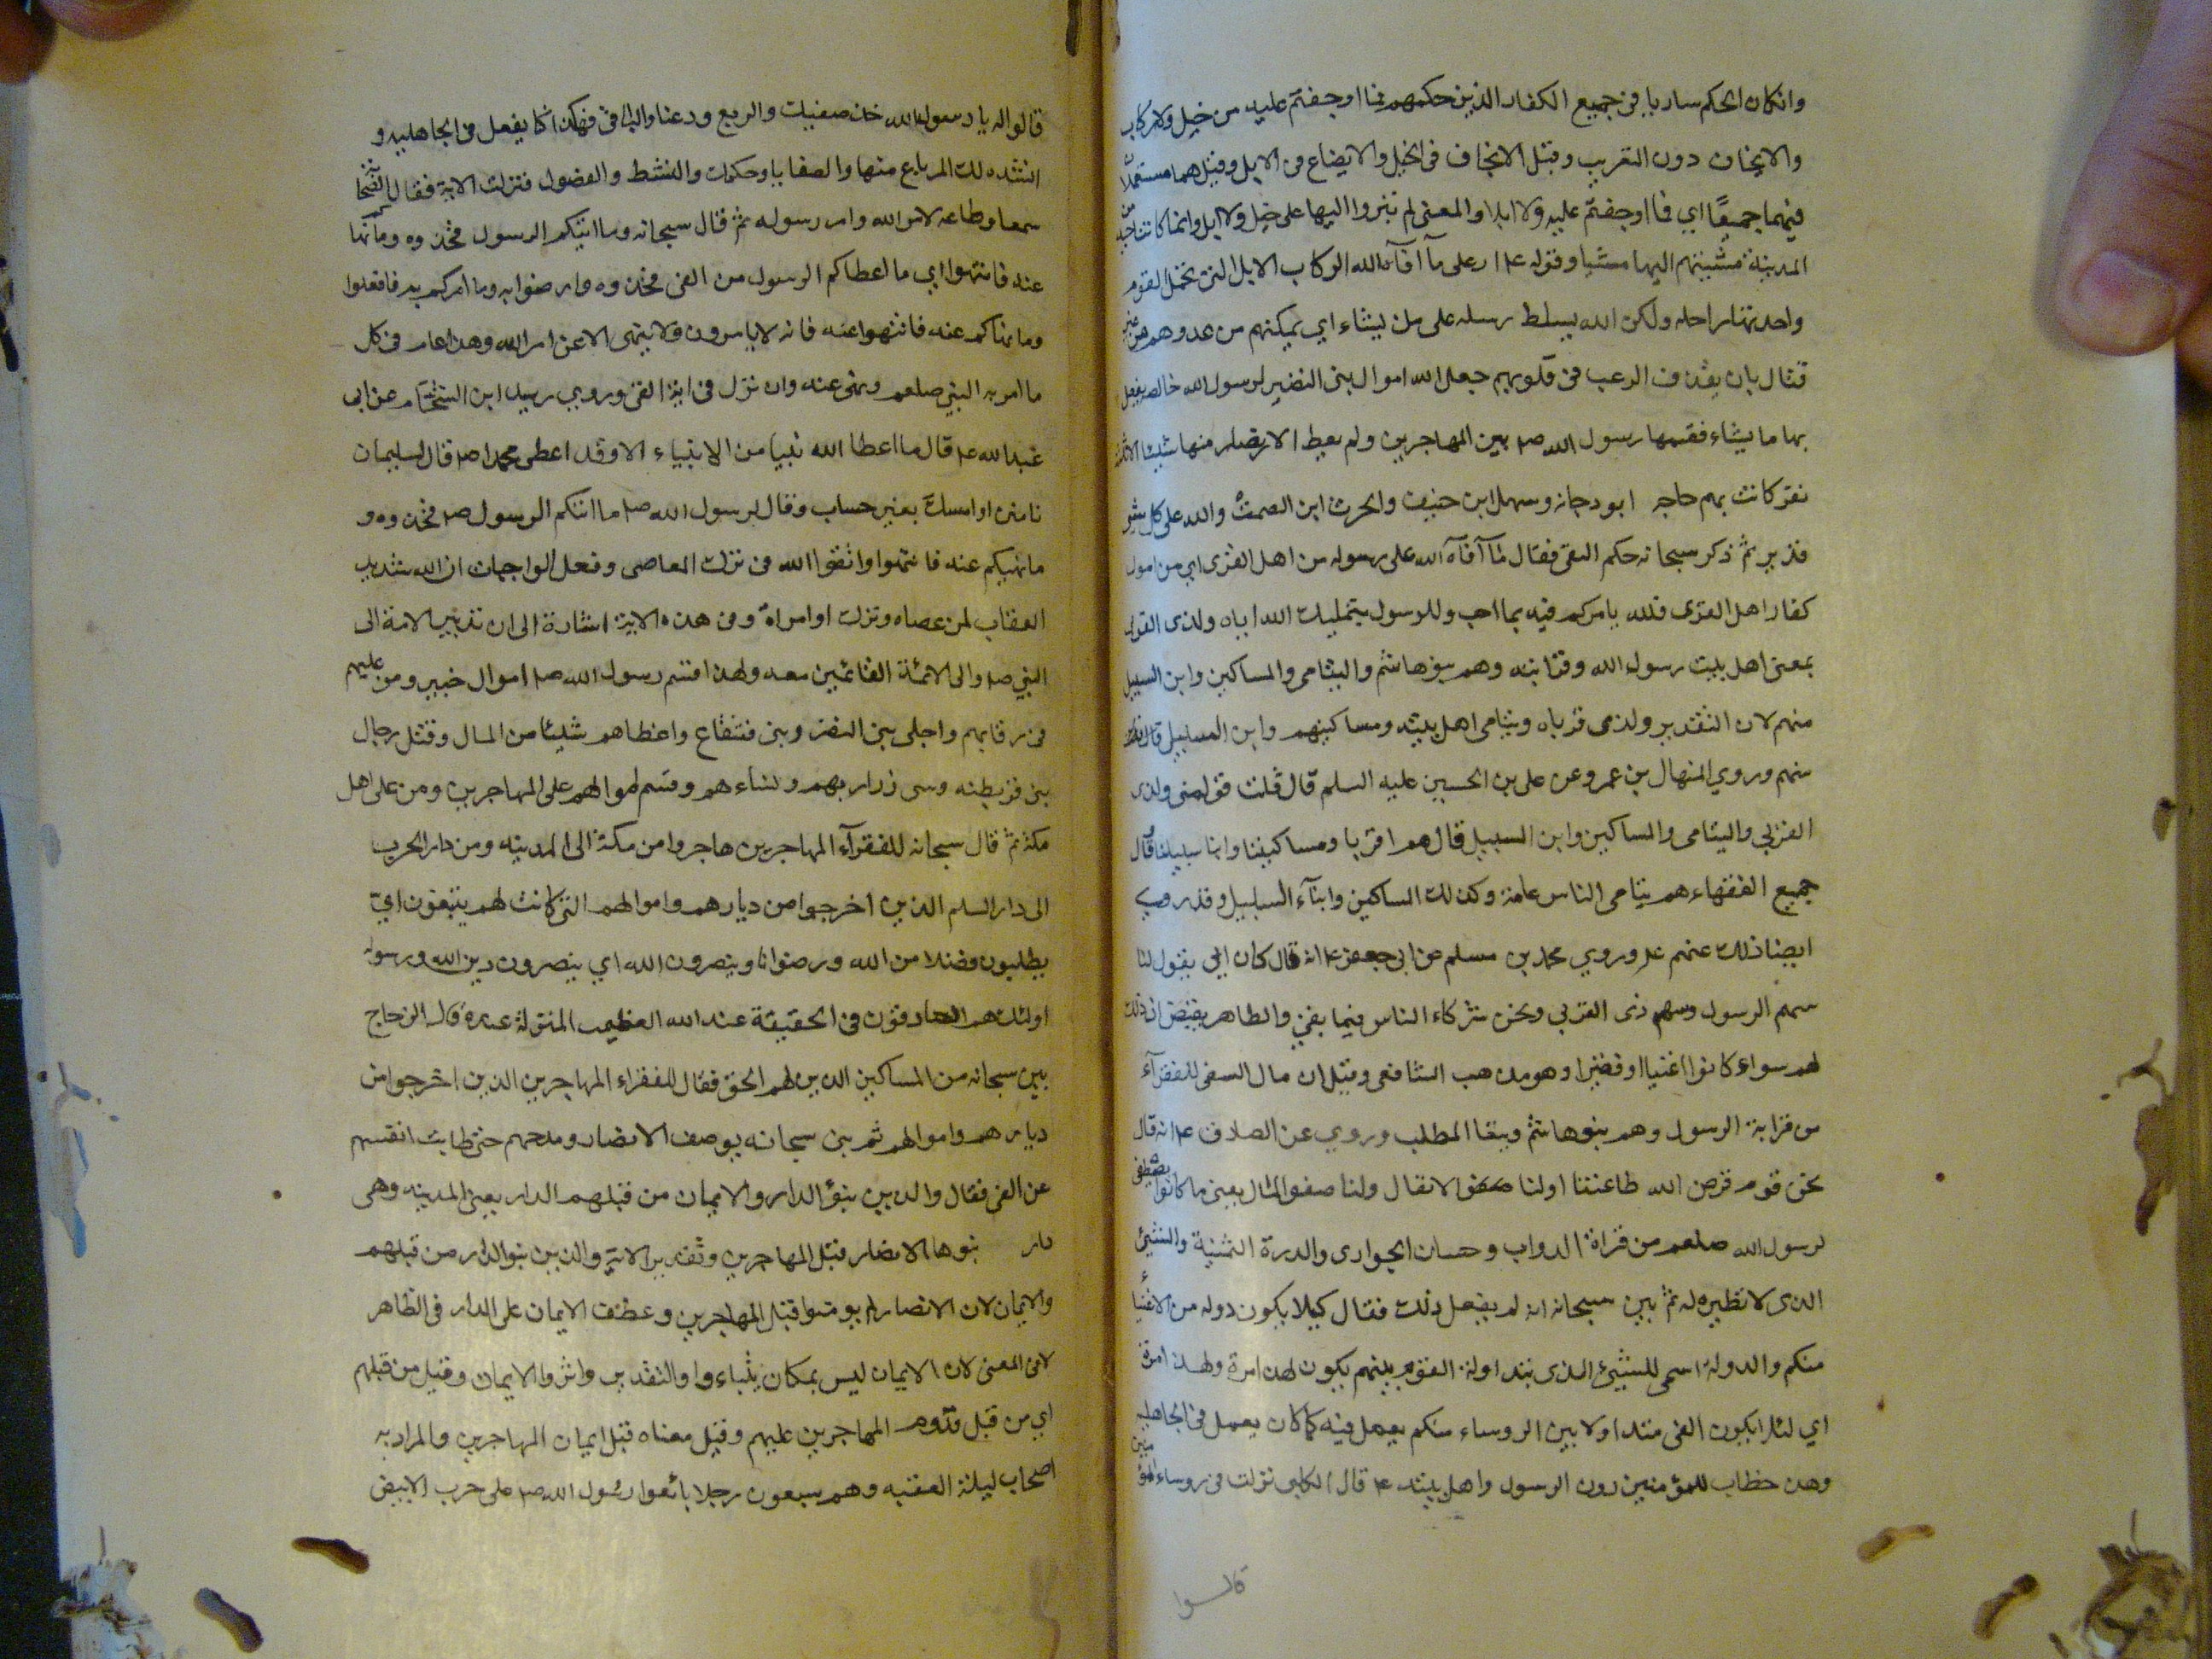 وان كان الحكم ساريا في جميع الكفار الذين حكمهم فما اوجفتم عليه من خيل ولا ركاب
والايجاف دون التقريب وقيل الايجاف في الخيل والايضاع في الابل وقيل هما مستعملان
فيهما جميعًا اي فما اوجفتم عليه ولا ابلا والمعنى لم تسيروا اليها على خيل ولا ابل وانما كانت ناحية من
المدينة مشيتم اليها مشيا وقوله عليه اي على ما آفآه الله الركاب الابل التي تحمل القوم
واحدتها راحله ولكن الله يسلط رسله على من يشاء اي يمكنهم من عدوهم من غير
قتال بان يقذف الرعب في قلوبهم جعل الله اموال بنى النضير لرسول الله خالصه يفعل
بها ما يشاء فقسمها رسول الله صم بين المهاجرين ولم يعط الانصار منها شيئا الا ثلثة
نفر كانت بهم حاجه ابو دجانه وسهل ابن حنيف والحرث ابن الصمت والله على كل شئ
قدير ثم ذكر سبحانه حكم الفئ فقال ما آفآه الله على رسوله من اهل القرى اي من اموال
كفار اهل القرى فلله يامركم فيه بما احب وللرسول بتمليك الله اياه ولذى القربى
يعنى اهل بيت رسول الله وقرابته وهم بنو هاشم واليتامى والمساكين وابن السبيل
منهم لان التقدير ولذى قرباه ويتامى اهل بيته ومساكينهم وابن السبيل
منهم وروي المنهال بن عمرو عن على بن الحسين عليه السلم قال قلت قوله ولذى
القربي واليتامى والمساكين وابن السبيل قال هم اقربا ومساكيننا وابنا سبيلنا وقال
جميع الفقهاء هم يتامى الناس عامة وكذلك المساكين وابنآء السبيل وقد روي
ايضا ذلك عنهم ع وروي محمد بن مسلم عن ابى جعفر ع انه قال كان ابي يقول لنا
سهم الرسول وسهم ذى القربي ونحن شركاء الناس فيما بقي والظاهر يقتضى ان ذلك
لهم سواء كانوا اغنيا او فقرا وهو مذهب الشافعى وقيل ان مال الفئ للفقرآء
من قرابة الرسول وهم بنو هاشم وبنوا المطلب وروي عن الصادق ع انه قال
نحن قوم فرض الله طاعتنا اولنا الانفال ولنا صفو المال يعنى ما كان يصطفى
لرسول الله صلعم من فراة الدواب وحسان الجوارى والدرة الثمنية والشئ
الذى لا نظير له ثم بين سبحانه انه لم يفعل ذلك فقال كيلا يكون دوله من الاغنيآء
منكم والدولة اسم للشئ الذى يتداولة القوم بينهم يكون لهذا مرة ولهذا مرة
اي لئلا يكون الفئ متداولا بين الروساء منكم يعمل فيه كما كان يعمل في الجاهليه
وهذا خطاب للمؤمنين دون الرسول واهل بيته ع قال الكلبى نزلت في روساء المؤمنين
قالـوا
قالوا له يا رسول الله خذ صفيك والربع ودعنا والباقى فهكذا كنا نفعل في الجاهليه و
انشده لك المرباع منها والصفايا وحكمك والنشط والفضول فنزلت الاية فقال الصحابة
سمعا وطاعه لامر الله وامر رسوله ثم قال سبحانه وما اتيكم الرسول فخذوه وما نهاكم
عنه فانتهوا اي ما اعطاكم الرسول من الفئ فخذوه وارضوا به وما امركم به فافعلوا
وما نهاكم عنه فانتهوا عنه فانه لا يامرون ولا ينهى الا عن امر الله وهذا عام في كل
ما امر به النبي صلعم ونهى عنه وان نزل في اية الفئ وروي زيد ابن الشحام عن ابى
عبد الله ع قال ما اعطا الله نبيا من الانبياء الا وقد اعطى محمدا صم قال لسليمان
فامنن او امسك بغير حساب وقال لرسول الله صم ما اتيكم الرسول صم فخذوه و
ما نهيكم عنه فانتهوا واتقوا الله في ترك المعاصى وفعل الواجبات ان الله شديد
العقاب لمن عصاه وترك اوامراه وفي هذه الاية اشارة الى ان تدبير الامة الى
النبي صم والى الائمة القائمين معه ولهذا اقسم رسول الله صم اموال خيبر ومن عليهم
في رقابهم واجلى بنى النضير وبنى قينقاع واعطاهم شيئا من المال وقتل رجال
بنى قريظه وسى ذراريهم ونساءهم وقسم اموالهم على المهاجرين ومن على اهل
مكة ثم قال سبحانه للفقرآء المهاجرين هاجروا من مكة الى المدينه ومن دار الحرب
الى دار السلم الذين اخرجوا من ديارهم واموالهم التي كانت لهم يبتغون اي
يطلبون فضلا من الله ورضوانا وينصرون الله اي ينصرون دين الله ورسوله
اولئك هم الصادقون في الحقيقة عند الله العظيم المنزلة عنده قال الزجاج
بين سبحانه من المساكين الذين لهم الحق فقال للفقراء المهاجرين الذين اخرجوا من
ديارهم واموالهم ثم بنى سبحانه بوصف الانصار ومدحهم حتى طابت انفسهم
عن الفئ فقال والذين تبوؤ الدار والايمان من قبلهم الدار يعنى المدينه وهى
دار بنوها الانصار قبل المهاجرين وتقدير الاية والذين تبوا الدار من قبلهم
والايمان لان الانصار لم يومنوا قبل المهاجرين وعطف الايمان على الدار في الظاهر
لا في المعنى لان الايمان ليس بمكان يتباءوا والتقدير واثروا الايمان وقيل من قبلهم
اي من قبل قدوم المهاجرين عليهم وقيل معناه قبل ايمان المهاجرين والمراد به
اصحاب ليلة العقبه وهم سبعون رجلا بائعوا رسول الله صم على حرب الابيض